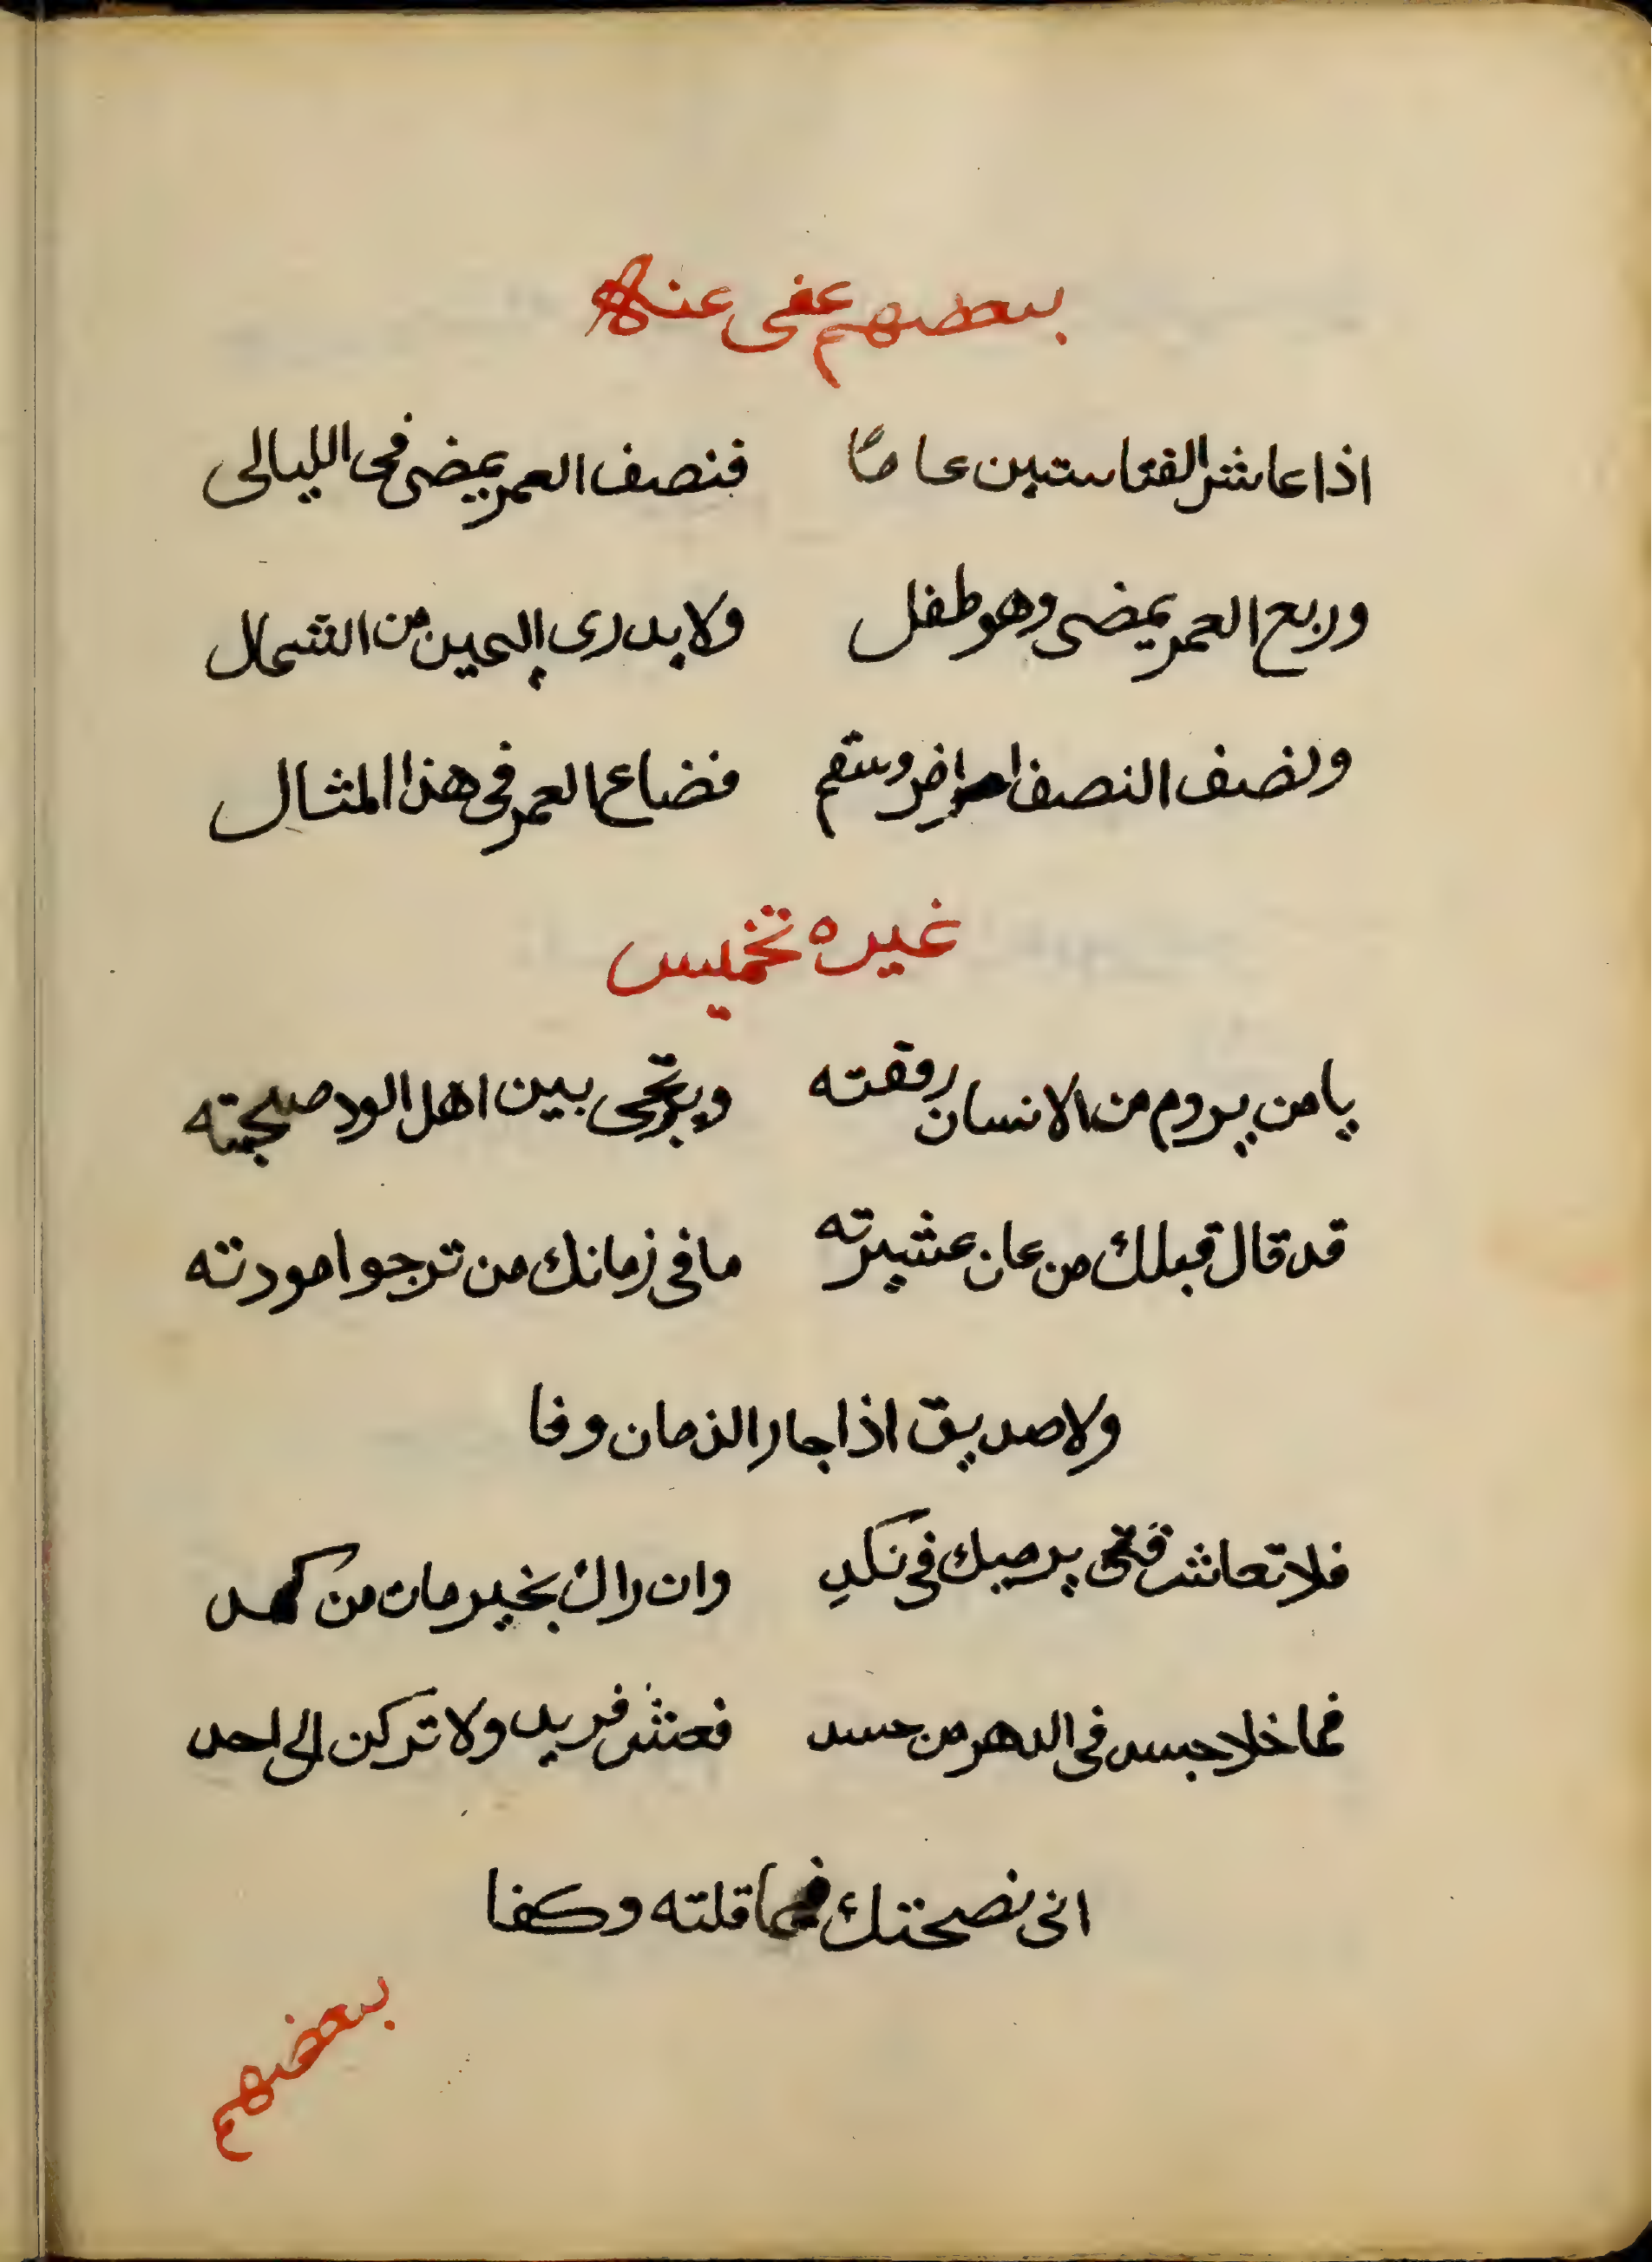 بعضهم عفى عنه
اذا عاش الفتا ستين عاماً فنصف العمر يمضى فى الليالى
وربع العمر يمضى وهو طفل ولا يدرى اليمين من الشمال
ونصف النصف امراض وسقم فضاع العمر فى هذا المثال
غيره تخميس
يا من يروم من الانسان رفقته ويرتجى بين اهل الود صحبته
قد قال قبلك من عان عشيرته ما فى زمانك من ترجوا مودته
ولا صديق اذا جار الزمان وفا
فلا تعاشر فتى يرميك فى نكدِ وان راك بخير مات من كمد
فما خلا جسد فى الدهر من حسد فعش فريد ولا تركن الى احد
انى نصحتك فيما قلته وكفا
بعضهم